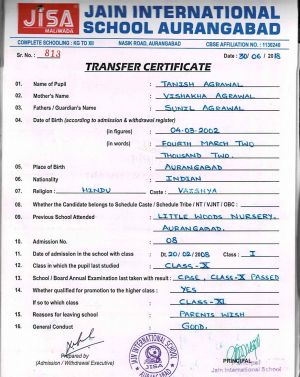 JISA JAIN INTERNATIONAL
MALIWADA SCHOOL AURANGABAD
COMPLETE SCHOOLING : KG TO XII NASIK ROAD, AURANGABAD CBSE AFFILIATION NO. : 1130249
Sr. No. : 813 Date : 30/06/2018
TRANSFER CERTIFICATE
01. Name of Pupil : TANISH AGRAWAL
02. Mother's Name : VISHAKHA AGRAWAL
03. Fathers / Guardian's Name : SUNIL AGRAWAL
04. Date of Birth (according to admission & withdrawal register)
(in figures) : 04-03-2002
(in words) : FOURTH MARCH TWO
THOUSAND TWO.
05. Place of Birth : AURANGABAD
06. Nationality : INDIAN
07. Religion : HINDU Caste : VAISHYA
08. Whether the Candidate belongs to Schedule Caste / Schedule Tribe / NT / VJNT / OBC :
09. Previous School Attended : LITTLE WOODS NURSERY.
AURANGABAD.
10. Admission No. : 08
11. Date of admission in the school with class : Dt. 20/02/2008 Class : I
12. Class in which the pupil last studied : CLASS-X
13. School / Board Annual Examination last taken with result : CBSE, CLASS-X PASSED
14. Whether qualified for promotion to the higher class : YES
If so to which class : CLASS-XI
15. Reasons for leaving school : PARENTS WISH
16. General Conduct : GOOD.
Prepared by
(Admission / Withdrawal Executive)
JAIN INTERNATIONAL SCHOOL
JISA
AURANGABAD
PRINCIPAL
Jain International School